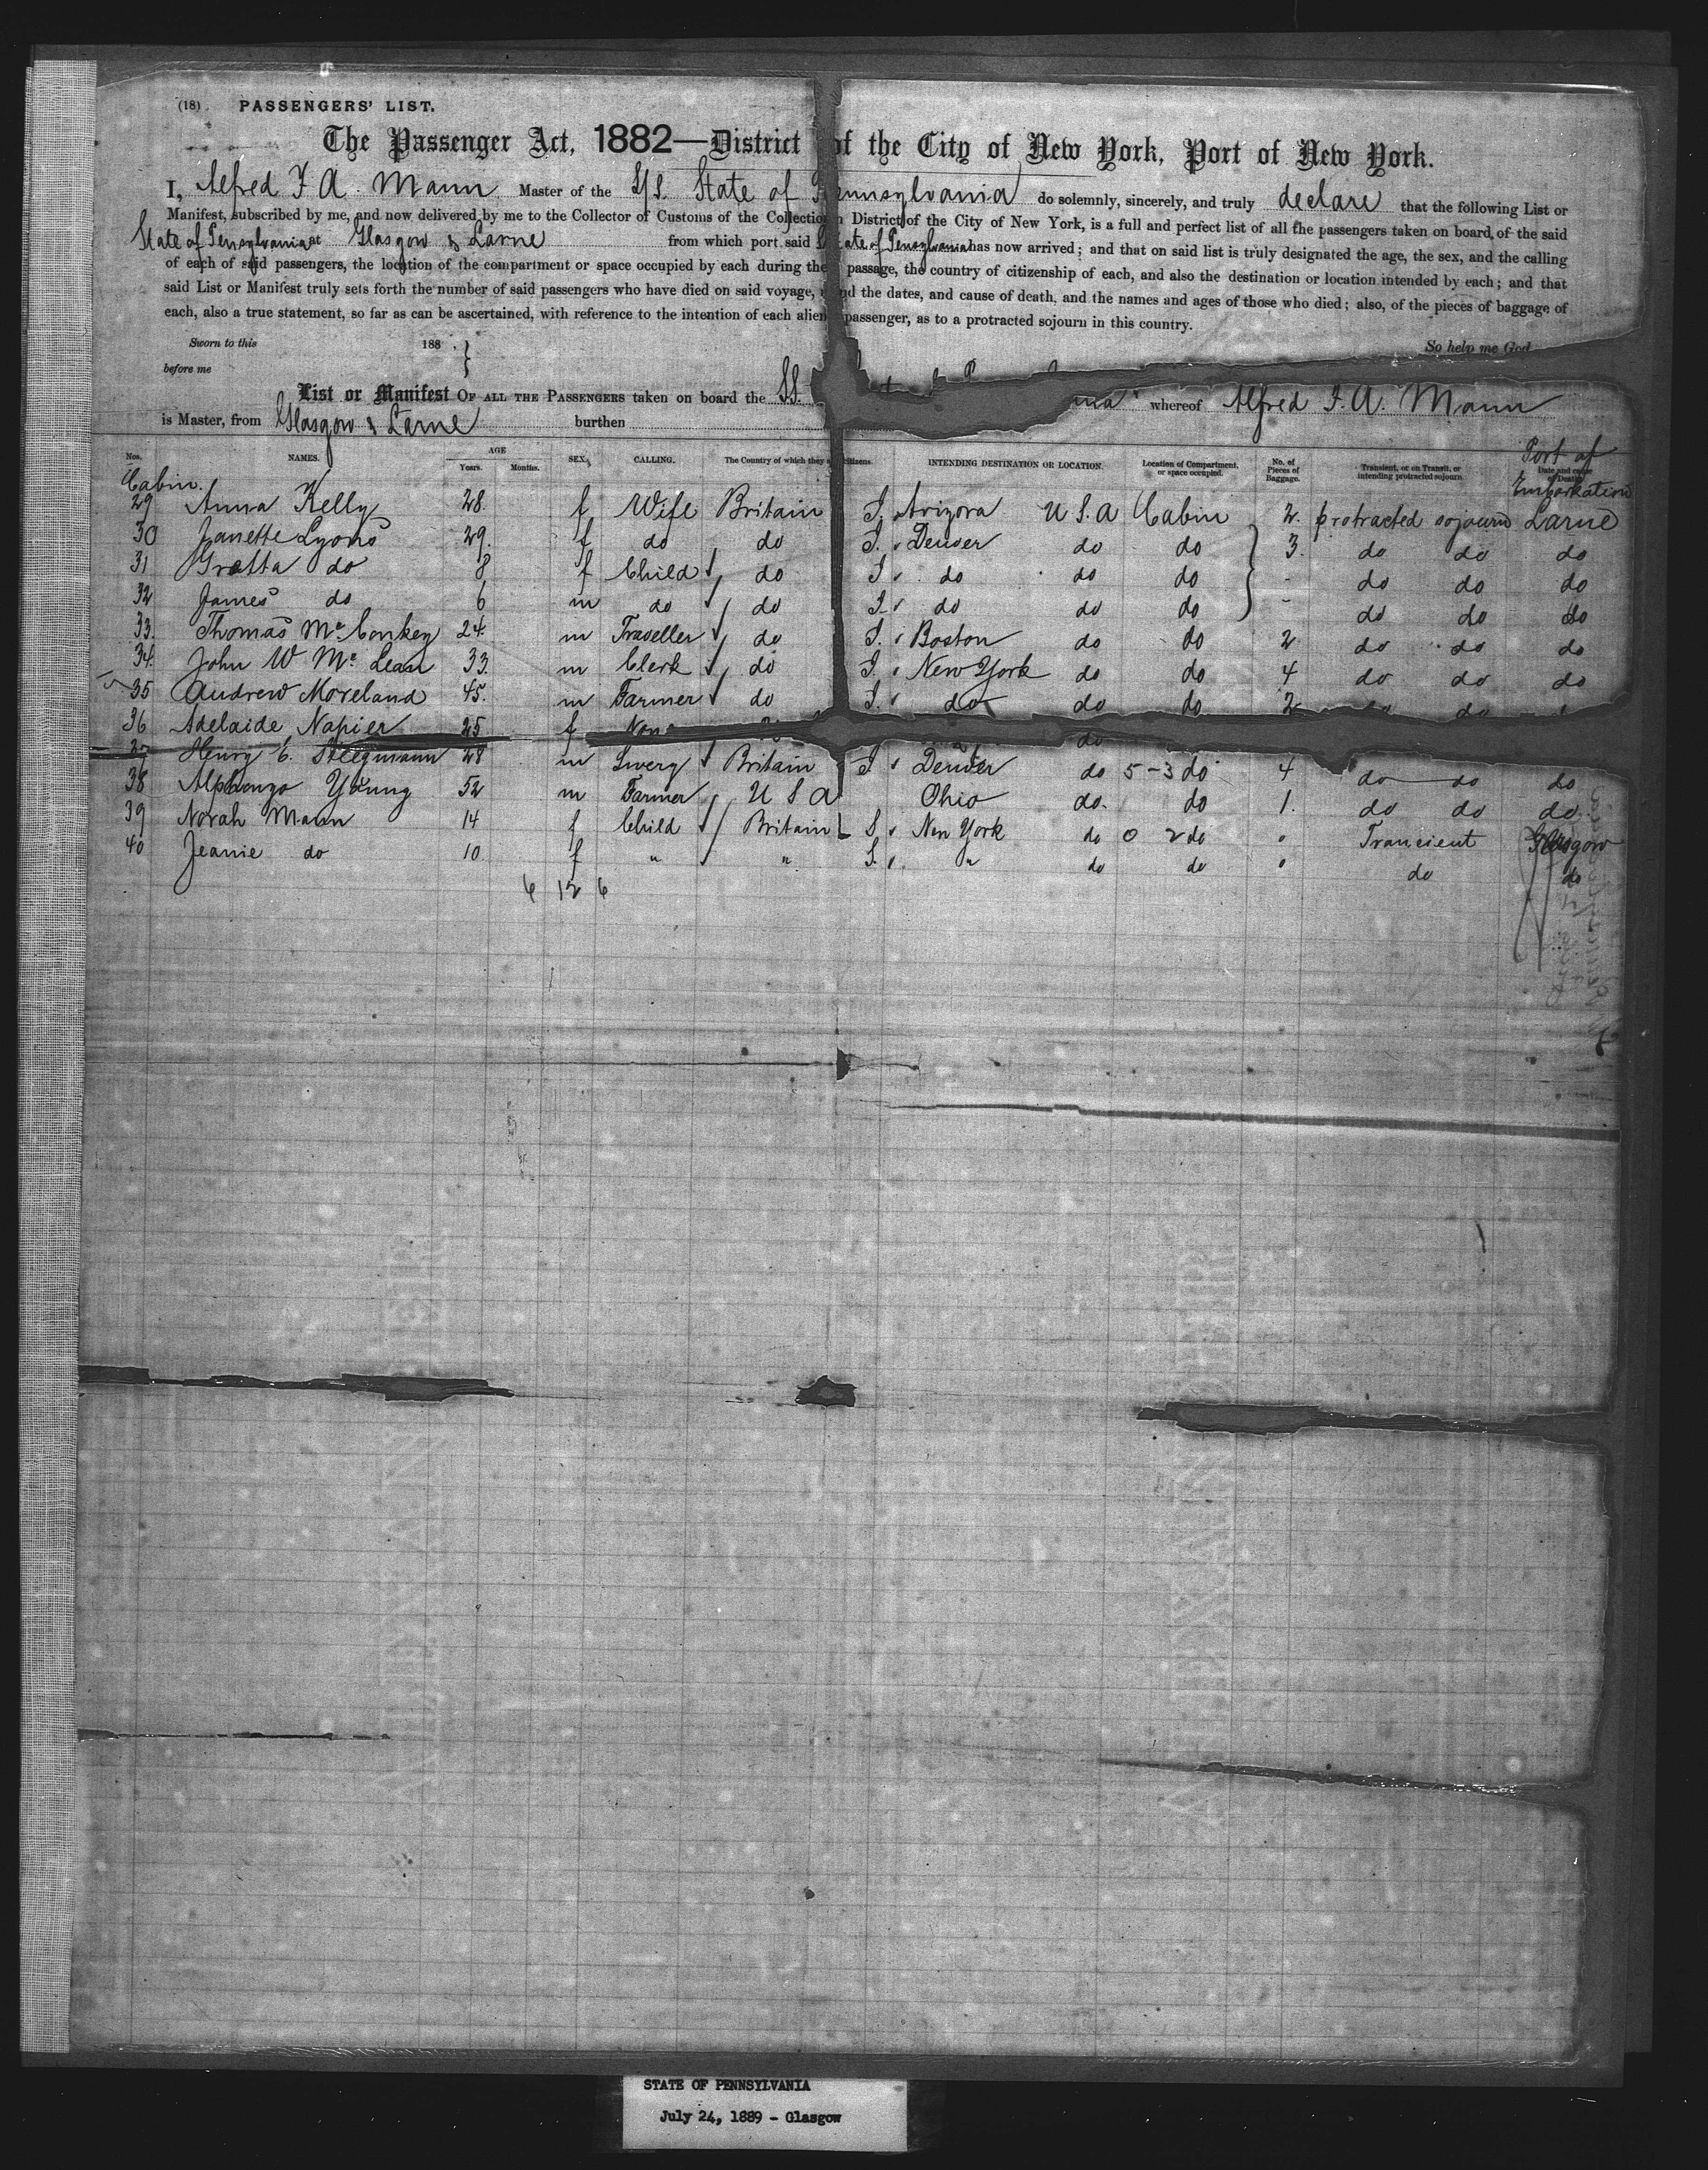 (18) PASSENGERS' LIST.
The Passenger Act, 1882—District of the City of New York, Port of New York.
I, Alfred F A. Mann Master of the S/S. State of Pennsylvania do solemnly, sincerely, and truly declare that the following List or
Manifest, subscribed by me, and now delivered by me to the Collector of Customs of the Collection District of the City of New York, is a full and perfect list of all the passengers taken on board of the said
State of Pensylvania at Glasgow & Larne from which port said State of Pensylvania has now arrived; and that on said list is truly designated the age, the sex, and the calling
of each of said passengers, the location of the compartment or space occupied by each during the passage, the country of citizenship of each, and also the destination or location intended by each; and that
said List or Manifest truly sets forth the number of said passengers who have died on said voyage, and the dates, and cause of death, and the names and ages of those who died; also, of the pieces of baggage of
each, also a true statement, so far as can be ascertained, with reference to the intention of each alien passenger, as to a protracted sojourn in this country.
Sworn to this 188 . So help me God
before me
List or Manifest OF ALL THE PASSENGERS taken on board the SS. whereof Alfred F. A. Mann
is Master, from Glasgow & Larne burthen
Nos. NAMES. AGE Years. Months. SEX. CALLING. The Country of which they are citizens. INTENDING DESTINATION OR LOCATION. Location of Compartment, or space occupied. No. of Pieces of Baggage. Transient, or on Transit, or intending protracted sojourn. Date and cause of Death. Port of Embarkation
Cabin.
29 Anna Kelly 28. f Wife Britain Arizona U S. A Cabin 2. protracted sojourn Larne
30 Janette Lyons 29. f do do Denver do do 3. do do do
31 Gretta do 8 f Child do do do do - do do do
32 James do 6 m do do do do do - do do do
33. Thomas Mc Conkey 24. m Traveller do Boston do do 2 do do do
34. John W Mc Lean 33. m Clerk do New York do do 4 do do do
35 Andrew Moreland 45. m Farmer do do do do 2 do do
36 Adelaide Napier 25 f do
37 Henry C. Steegmann 28 m Britain Denver do 5-3 do 4 do do do
38 Alphonzo Young 52 m Farmer U S A Ohio do. do 1. do do do.
39 Norah Mann 14 f Child Britain S New York do 0 2 do Trancient Glasgow
40 Jeanie do 10 f " " S. " do do do do
6 12 6
STATE OF PENNSYLVANIA
July 24, 1889 - Glasgow